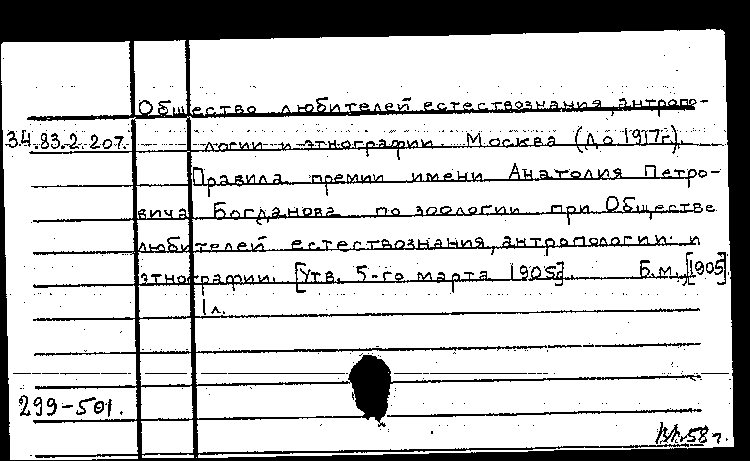 Общество любителей естествознания, антропо-
34.83.2.207. логии и этнографии. Москва (до 1917г.).
Правила премии имени Анатолия Петро-
вича Богданова по зоологии при Обществе
любителей естествознания, антропологии и
этнографии. [Утв. 5-го марта 1905]. Б.м., [1905].
1 л.
299-501.
58 г.